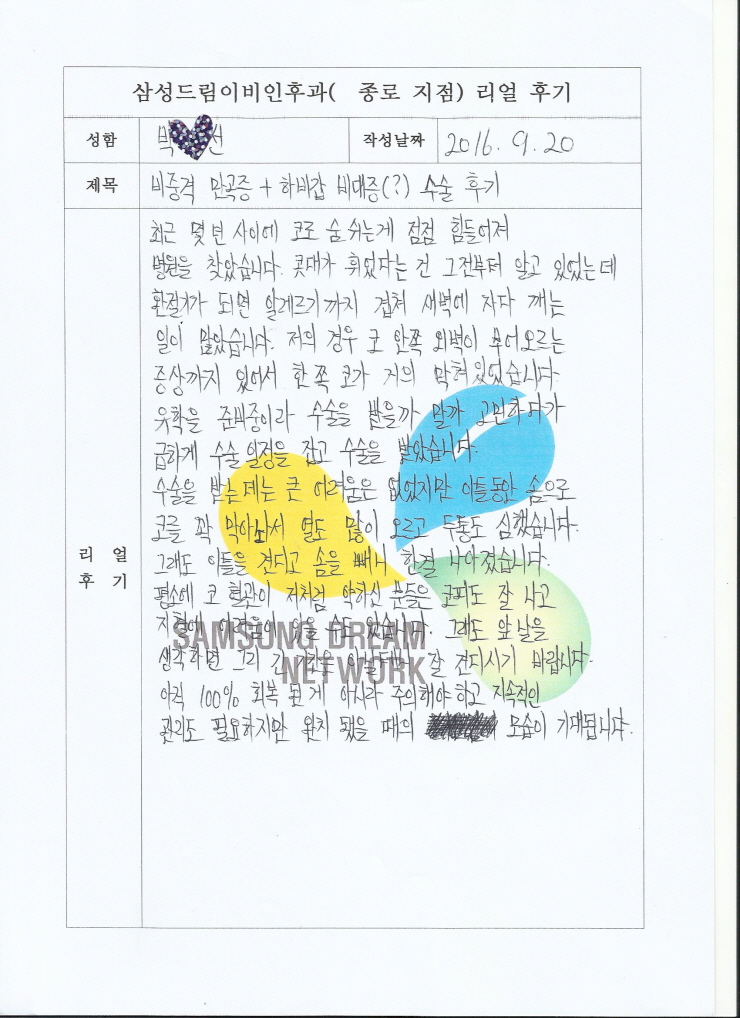 삼성드림이비인후과( 종로 지점) 리얼 후기
성함 박 선 작성날짜 2016. 9. 20
제목 비중격 만곡증 + 하비갑 비대증(?) 수술 후기
리 얼
후 기
최근 몇 년 사이에 코로 숨쉬는게 점점 힘들어져
병원을 찾았습니다. 콧대가 휘었다는 건 그전부터 알고 있었는데
환절기가 되면 알레르기까지 겹쳐 새벽에 자다 깨는
일이 많았습니다. 저의 경우 코 안쪽 외벽이 부어오르는
증상까지 있어서 한 쪽 코가 거의 막혀있었습니다
유학을 준비중이라 수술을 받을까 말까 고민하다가
급하게 수술 일정을 잡고 수술을 받았습니다.
수술을 받는데는 큰 어려움은 없었지만 이틀동안 솜으로
코를 꽉 막아놔서 열도 많이 오르고 두통도 심했습니다.
그래도 이틀을 견디고 솜을 빼니 한결 나아졌습니다.
평소에 코 혈관이 저처럼 약하신 분들은 코피도 잘 나고
지혈에 어려움이 있을 수도 있습니다. 그래도 앞날을
생각하면 그리 긴 기간은 아닐테니 잘 견디시기 바랍니다.
아직 100% 회복 된 게 아니라 주의해야 하고 지속적인
관리도 필요하지만 완치 됐을 때의 모습이 기대됩니다.
SAMSUNG DREAM
NETWORK